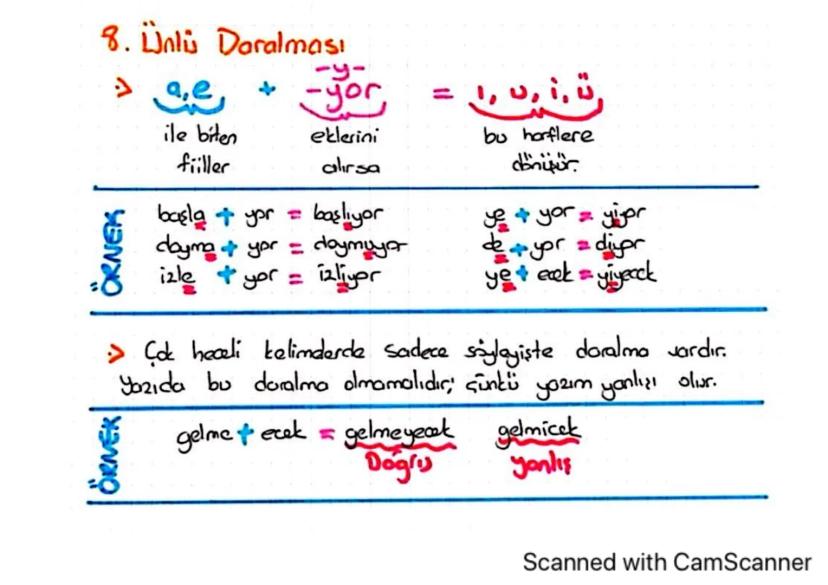 8. Ünlü Daralması
-y-
:> a,e + -yor = ı, u, i, ü
ile biten eklerini bu harflere
fiiller alırsa dönüşür.
ÖRNEK
başla + yor = başlıyor ye + yor = yiyor
doyma + yor = doymuyor de + yor = diyor
izle + yor = izliyor ye + ecek = yiyecek
:> Çok heceli kelimelerde sadece söyleyişte daralma vardır.
Yazıda bu daralma olmamalıdır; çünkü yazım yanlışı olur.
ÖRNEK
gelme + ecek = gelmeyecek gelmicek
Doğru yanlış
Scanned with CamScanner